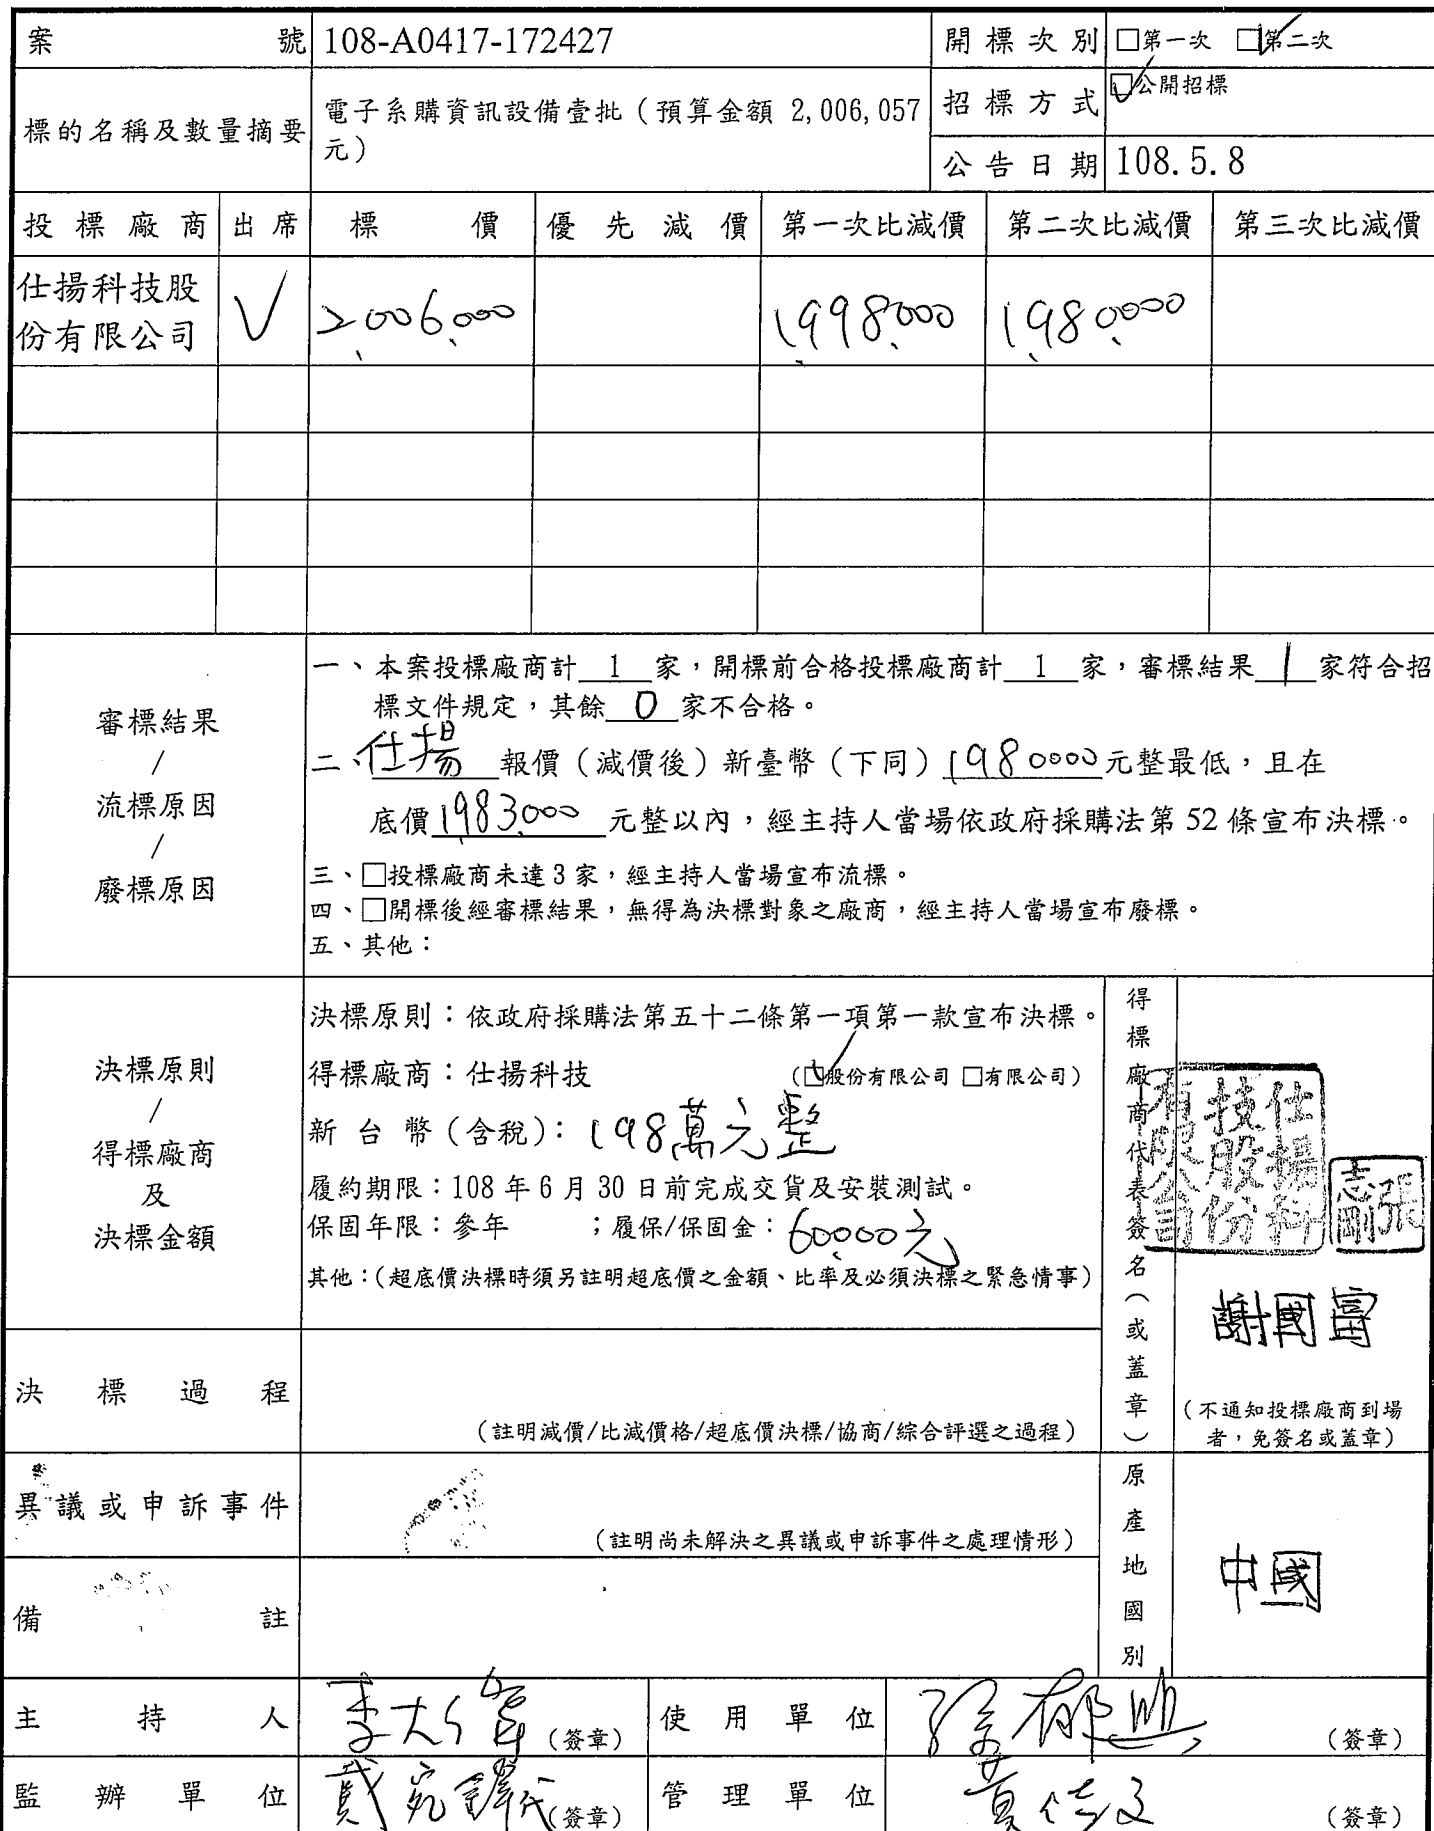 案號 108-A0417-172427 開標次別 □第一次 ☑第二次
標的名稱及數量摘要 電子系購資訊設備壹批（預算金額 2,006,057元） 招標方式 ☑公開招標
公告日期 108.5.8
投標廠商 出席 標價 優先減價 第一次比減價 第二次比減價 第三次比減價
仕揚科技股份有限公司 V 2,006,000 1,998,000 1,980,000
審標結果
/
流標原因
/
廢標原因
一、本案投標廠商計 1 家，開標前合格投標廠商計 1 家，審標結果 1 家符合招
標文件規定，其餘 0 家不合格。
二、仕揚 報價（減價後）新臺幣（下同）1980000元整最低，且在
底價1,983,000 元整以內，經主持人當場依政府採購法第 52 條宣布決標。
三、□投標廠商未達 3 家，經主持人當場宣布流標。
四、□開標後經審標結果，無得為決標對象之廠商，經主持人當場宣布廢標。
五、其他：
決標原則
/
得標廠商
及
決標金額
決標原則：依政府採購法第五十二條第一項第一款宣布決標。
得標廠商：仕揚科技 （☑股份有限公司 □有限公司）
新台幣（含稅）：198萬元整
履約期限：108 年 6 月 30 日前完成交貨及安裝測試。
保固年限：參年 ；履保/保固金：60,000元
其他：（超底價決標時須另註明超底價之金額、比率及必須決標之緊急情事）
得標廠商代表簽名（或蓋章）
仕揚科技股份有限公司
張志剛
謝國富
（不通知投標廠商到場
者，免簽名或蓋章）
決標過程
（註明減價/比減價格/超底價決標/協商/綜合評選之過程）
異議或申訴事件
（註明尚未解決之異議或申訴事件之處理情形）
原產地國別 中國
備註
主持人 李大偉 （簽章） 使用單位 （簽章）
監辦單位 （簽章） 管理單位 （簽章）